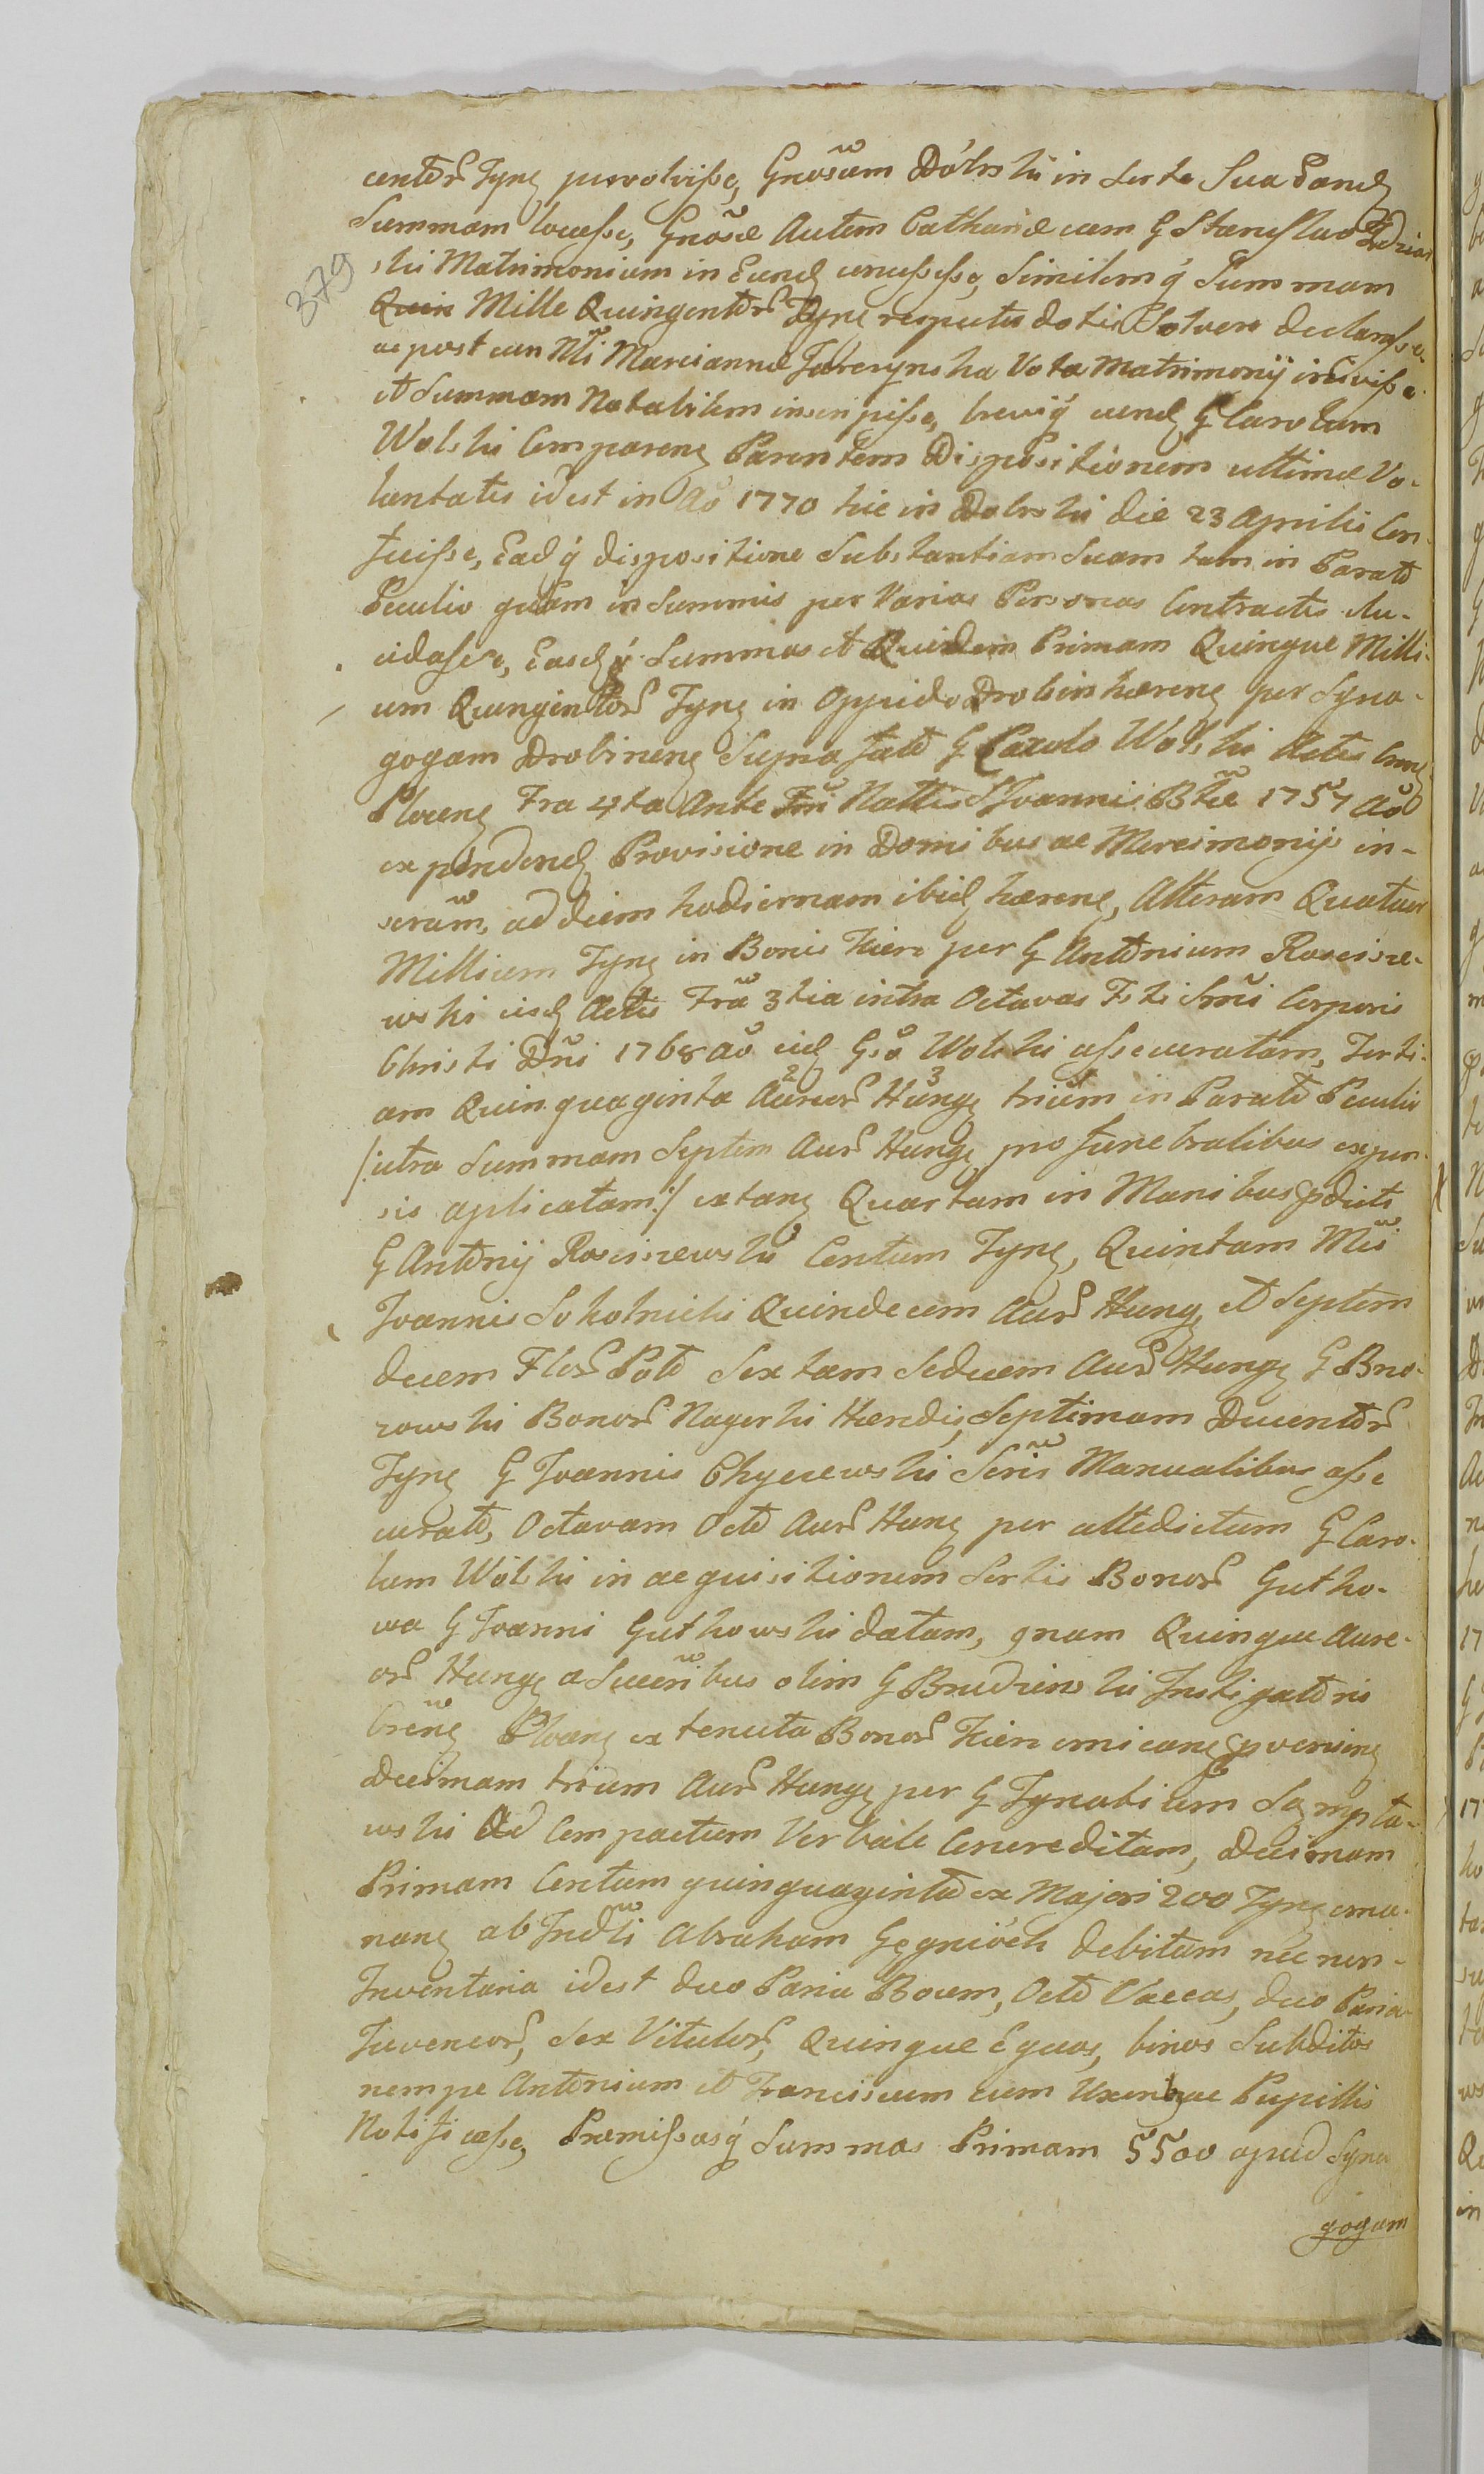 centor Tynf persolvisse, Gnosum Dólski in Sorte Sua Eand
Summam locasse, Gnosæ Autem Catharinæ cum G Stanislao Zdziar
ski Matrimonium in Eund concessisse, Similemq Summam
Quin Mille Quingentor Tynf respectu dotis Solvere declarasse
ac post cum Nli Mariannæ Jaroszynska Vota Matrimonÿ inivisse
et Summam Notabilem inscripisse, breviq eund G Carolum
Wolski Comparens Parentem Dispositionem ultimæ Vo-
luntatis id est in Ao 1770 hic in Dolsko die 23 Aprilis Con-
fecisse, Eadq dispositione Substantiam Suam tam in Parato
Peculio quam in Summis per Varias Personas Contractis Elu-
cidasse, Easdq Summas et Quidem Primam Quinque Milli-
um Quingentor Tynf in Oppido Drobin hærens per Syna-
gogam Drobinens Supra fato G Carolo Wolski Actis Cons
Plocens Fra 4ta Ante Fm Nattis S Joannis Btæ 1757 Ao
expendend Provisione in Domibus ac Mercimonÿs in-
scram, ad diem hodiernam ibid hærens, Alteram Quatuor
Millium Tynf in Bonis Kiern per G Antonium Rosciszew-
wski iisd Actis Fra 3tia intra Octavas Fsti Smi Corporis
Christi Dni 1768 Ao eid Gso Wolski assecuratam, Terti-
am Quinquaginta Aureor 2 Hung 3 trium in Parato Peculio
/:ultra Summam Septem Aur Hung pro funebralibus expen-
sis aplicatam:/ extans Quartam in Manibus pdicti
G Antonÿ Rosciszewski Centum Tynf, Quintam Mci
Joannis Sokolnicki Quindecem Aur Hung et Septem
decem Flor Pol Sextam Sedecem Aur Hung G Bro-
rowski Bonor Nagorki Hæredis, Septimam Ducentor
Tynf G Joannis Chyczewski Scris Manualibus asse
curato, Octavam Octo Aur Hung per attedictum G Caro-
lum Wolski in acquisitionem Sortis Bonor Gutko-
wa G Joanni Gutkowski datam, 9nam Quinque Aure-
or Hung a Succribus olim G Brudzinski Instigatoris
Crens Plocens ex tenuta Bonor Kiern emicans provenien
Decimam trium Aur Hung per G Ignatium Sampła-
wski Ad Compactum Verbale Concreditam, Decimam
Primam Centum quinquaginta ex Majori 200 Tynf ema-
nans ab Indli Abraham Gęgnióch debitam nec non
Inventaria id est duo Paria Boum, Octo Vaccas, duo Paria
Juvencor, Sex Vitulor, Quinque Equas, binos Subditos
nempe Antonium et Franciscum cum Uxoribq ac Pupillis
Notificasse, Præmissasq Summas Primam 5500 apud Syna
gogam
379